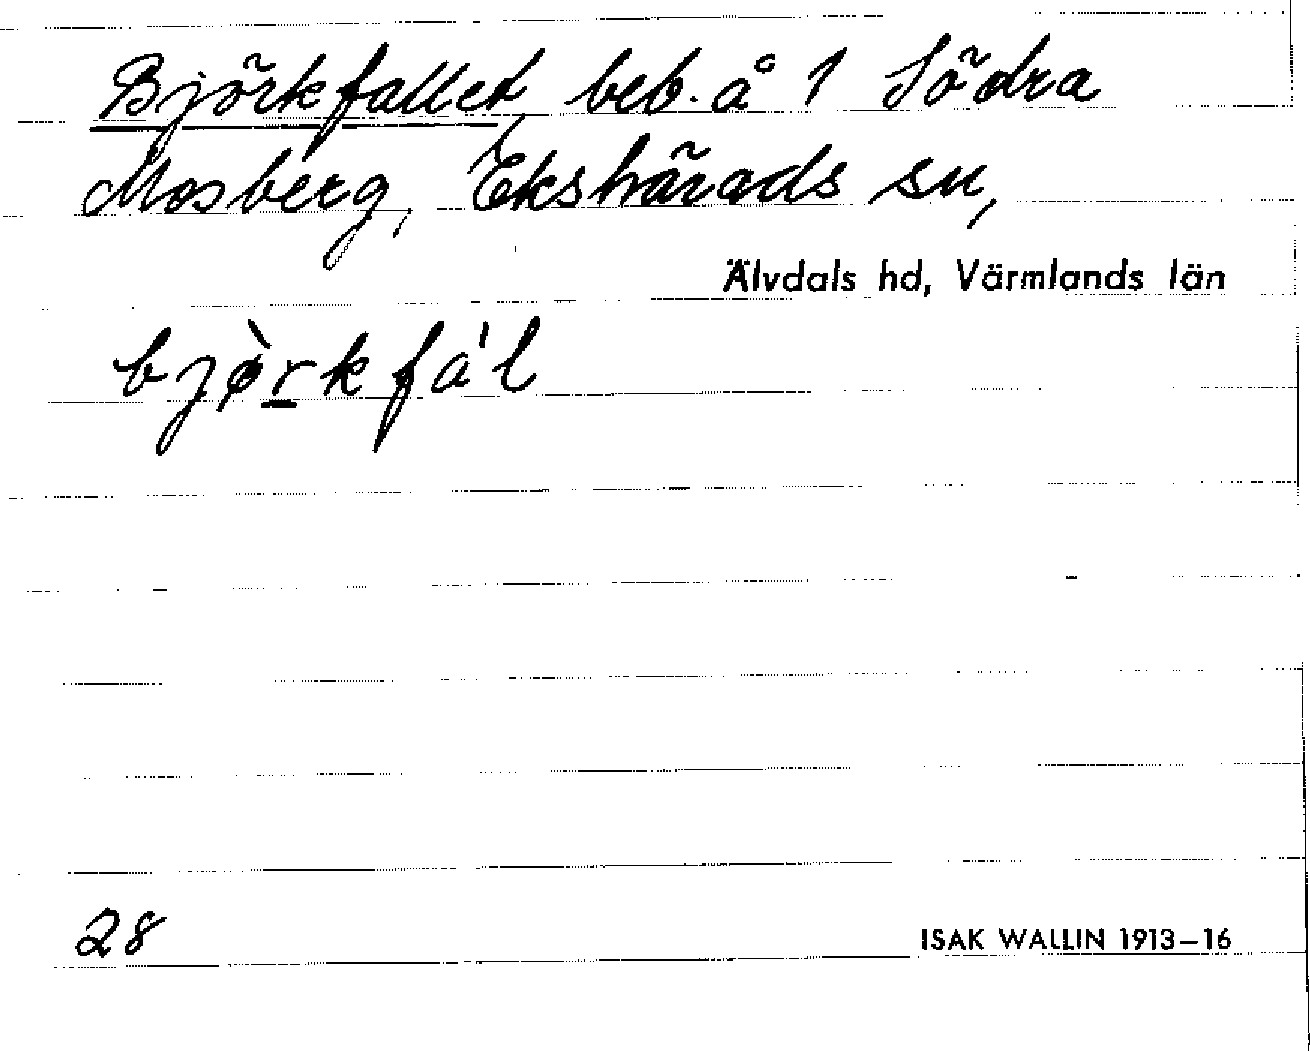 Björkfallet, beb. å 1 Södra
Mosberg, Ekshärads sn,
Älvdals hd, Värmlands län
bjø̀rkfa'l
28
ISAK WALLIN 1913–16